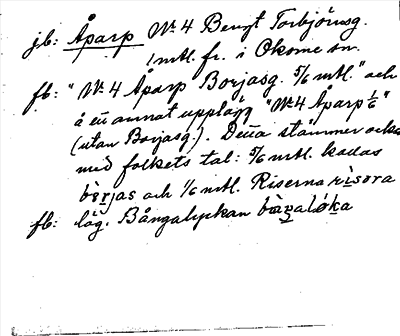 jb: Åparp No. 4 Bengt Torbjörnsg.
1 mtl. fr. i Okome sn.
fb: "No. 4 Åparp Borjasg. 5/6 mtl." och
å en annat upplägg "No. 4 Åparp 1/6"
(utan Borjasg.). Detta stämmer också
med folkets tal: 5/6 mtl. kallas
bòrjas och 1/6 mtl. Riserna rìsora
fb: läg. Bångalyckan